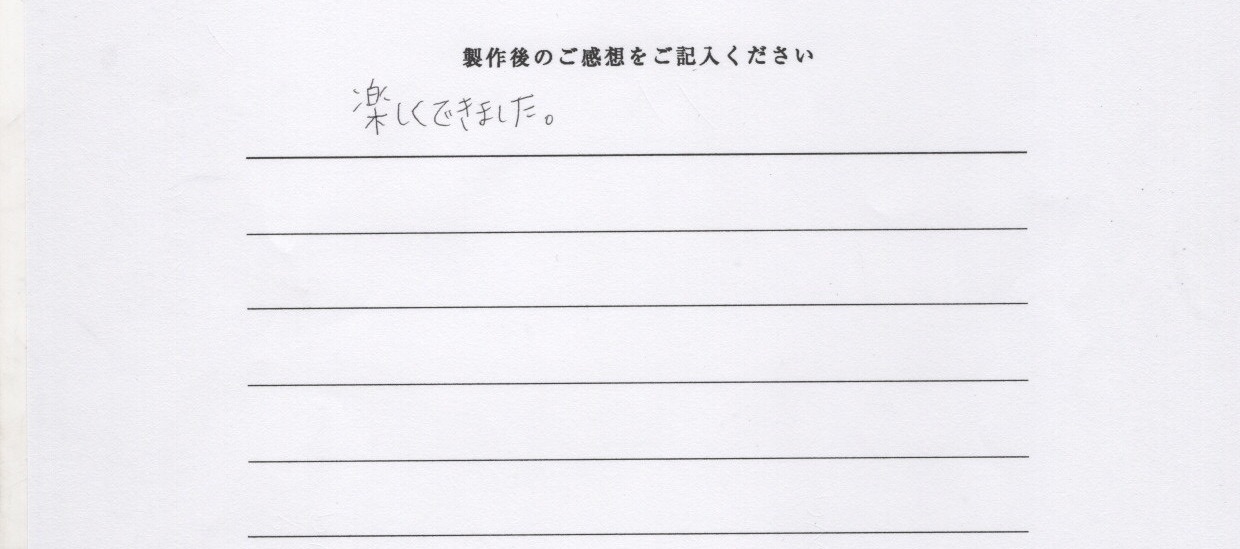 製作後のご感想をご記入ください
楽しくできました。